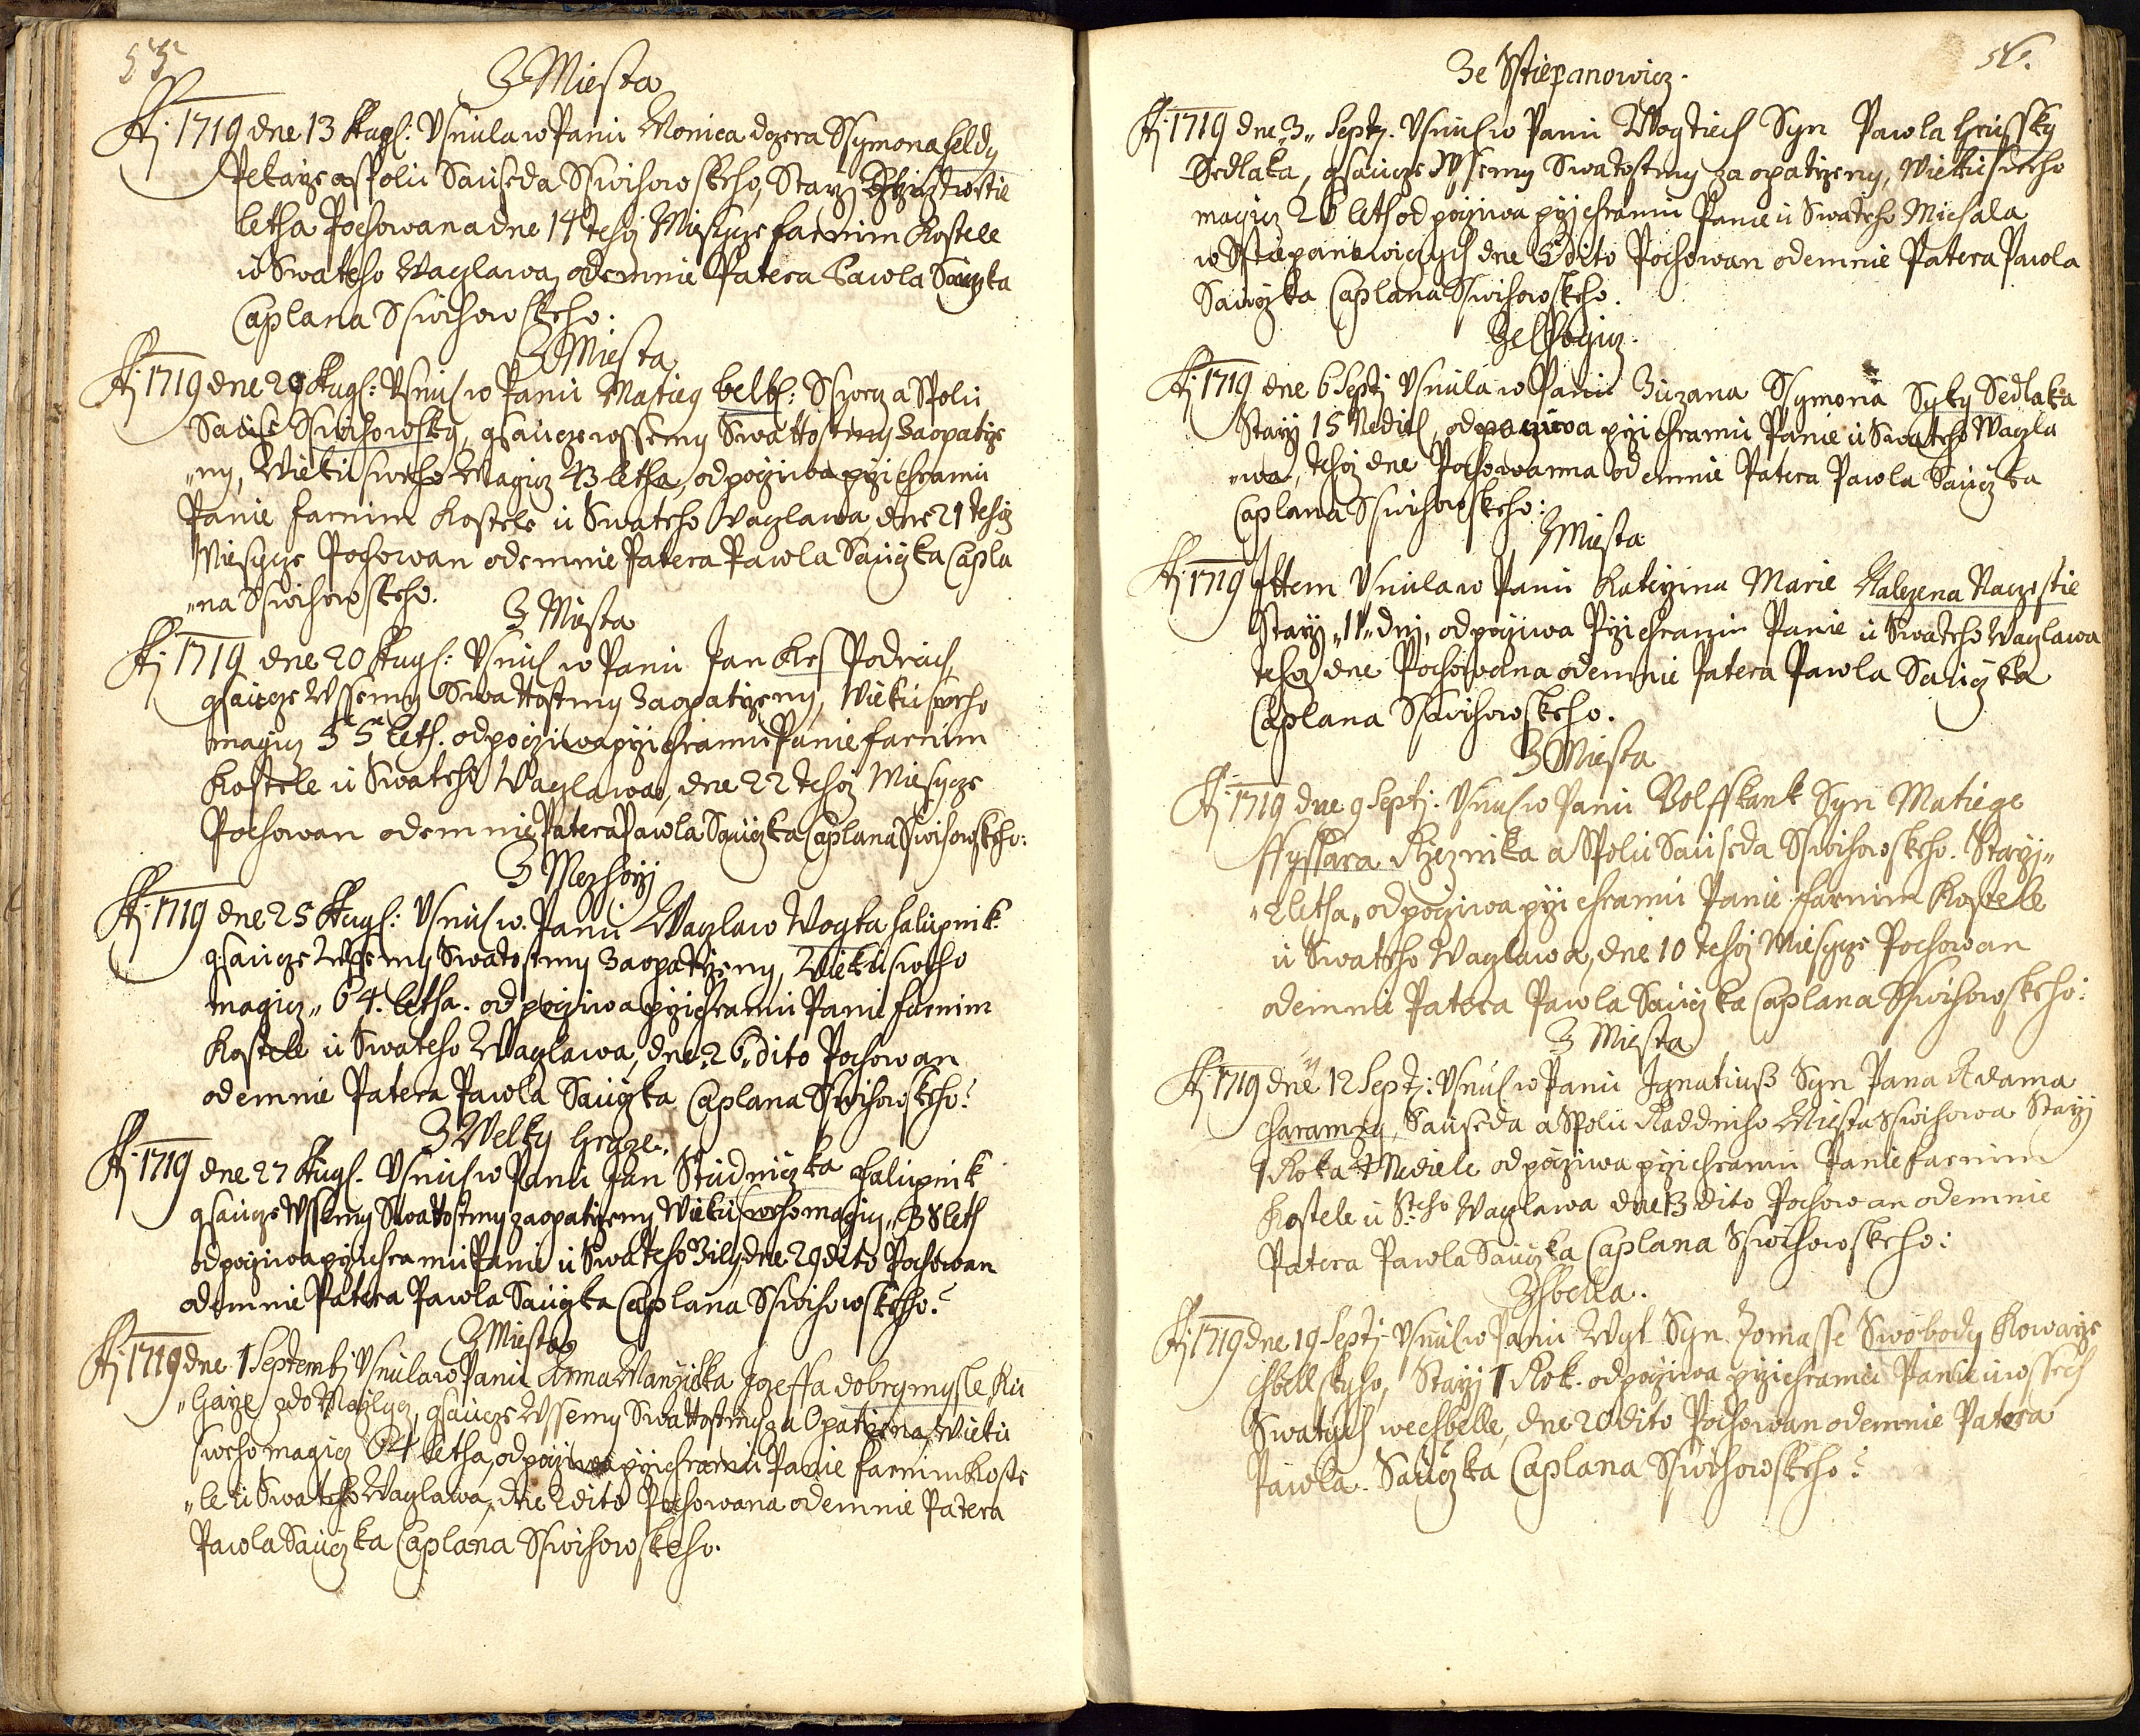 55
Z Miesta
A: 1719 dne 13 Aug: Usnula w Panu Monica dczera Ssymona heldy
Pekarze a spolu Sauseda Sswihowskeho, Starzj
letha Pochowana dne 14 tehoz Miesycze farnim Kostele
u Swateho Waczlawa, odemnie Patera Pawla Sauczka
Caplana Sswihowskeho.
Z Miesta
A: 1719 dne 20 Aug: Usnul w Panu Matieg belk: Sswecz a Spolu
Sause Sswihowsky, gsaucze wssemy Swattostmy Zaopatrze
"ny, Wieku sweho Magicz 43 letha, odpocziwa przi chramu
Panie farnim Kostele u Swateho Waczlawa dne 21 tehoz
Miesycze Pochowan odemnie Patera Pawla Sauczka Capla
"na Sswihowskeho.
Z Miesta
A: 1719 dne 20 Aug: Usnul w Panu Jan kles Podruch,
gsaucze Wssemy Swattostmy Zaopatrzeny, Wieku sweho
magicz 55 leth. odpocziwa przi chramu Panie farnim
Kostele u Swateho Waczlawa, dne 22 tehoz Miesycze
Pochowan odemnie Patera Pawla Sauczka Caplana Sswihowskeho:
Z Mezhorzj
A: 1719 dne 25 Aug: Usnul w Panu Waczlaw Wogta halupnik
gsaucze Wssemy Swatostmy Zaopatrzeny, Wieku sweho
magicz " 64. letha. odpocziwa przi chramu Panie farnim
Kostele u Swateho Waczlawa, dne 26. dito Pochowan
odemnie Patera Pawla Sauczka Caplana Sswihowskeho:
Z Welky Hraze.
A: 1719 dne 27 Aug. Usnul w Panu Jan Studniczka halupnik
gsaucze Wssemy Swattostmy zaopatrzeny Wieku sweho magicz " 38 leth
odpocziwa przi chramu Panie u Swateho Zily, dne 29 dito Pochowan
odemnie Patera Pawla Sauczka Caplana Sswihowskeho:
Z Miesta
A: 1719 dne 1 Septembj Usnula w Panu Anna Manzielka Jozeffa dobrymysle Ku
"harze gsaucze Wssemy Swattostmy za Opatrena, Wieku
sweho magicz 64 letha, odpocziwa przi chramu Panie farnim Koste
"le u Swateho Waczlawa, dne 2 dito Pochowana odemnie Patera
Pawla Sauczka Caplana Sswihowskeho.
56.
Ze Sstiepanowicz.
A: 1719 dne "3" Septj. Usnul w Panu Wogtiech Syn Pawla Hrussky
Sedlaka, gsaucze Wssemy Swatostmy zaopatrzeny, Wieku sweho
magicz 26 leth odpocziwa przi chramu Panie u Swateho Michala
w Sstiepanowiczych dne 5 dito Pochowan odemnie Patera Pawla
Sauczka Caplana Sswihowskeho.
A: 1719 dne 6 Septj Usnula w Panu Zuzana Ssymona Syky Sedlaka
Starzj 15 Nedieli, odpocziwa przi chramu Panie u Swateho Waczla
"wa, tehoz dne Pochowanna odemnie Patera Pawla Sauczka
Caplana Sswihowskeho:
Z Miesta
A: 1719 Ittem Usnula w Panu Katerzina Marie Nalezena Naczestie
Starzj "11" dnj, odpocziwa Przi chramu Panie u Swateho Waczlawa
tehoz dne Pochowana odemnie Patera Pawla Sauczka
Caplana Sswihowskeho.
Z Miesta
A: 1719 dne 9 Septj. Usnul w Panu Volffkank Syn Matiege
Ffyssara Rzeznika a Spolu Sauseda Sswihowskeho. Starzj"
"2 letha, odpocziwa przi chramu Panie farnim Kostele
u Swateho Waczlawa, dne 10 tehoz Miesycze Pochowan
odemnie Patera Pawla Sauczka Caplana Sswihowskeho:
Z Miesta
A: 1719 dne 12 Septj: Usnul w Panu Ignatiuß Syn Pana Adama
charamzy, Sauseda a Spolu Raddniho Miesta Sswihowa Starzj
1 Roka 4 Nediele odpocziwa przi chramu Panie farnim
Kostele u S:teho Waczlawa dne 13 dito Pochowan odemnie
Patera Pawla Sauczka Caplana Sswihowskeho:
Z chbella.
A: 1719 dne 19 Septj Usnul w Panu Wyt Syn Tomasse Swobody Kowarze
chbellskyho, Starzj 1 Rok. odpocziwa przi chramu Panie u wssech
Swatych wechbelle, dne 20 dito Pochowan odemnie Patera
Pawla Sauczka Caplana Sswihowskeho: